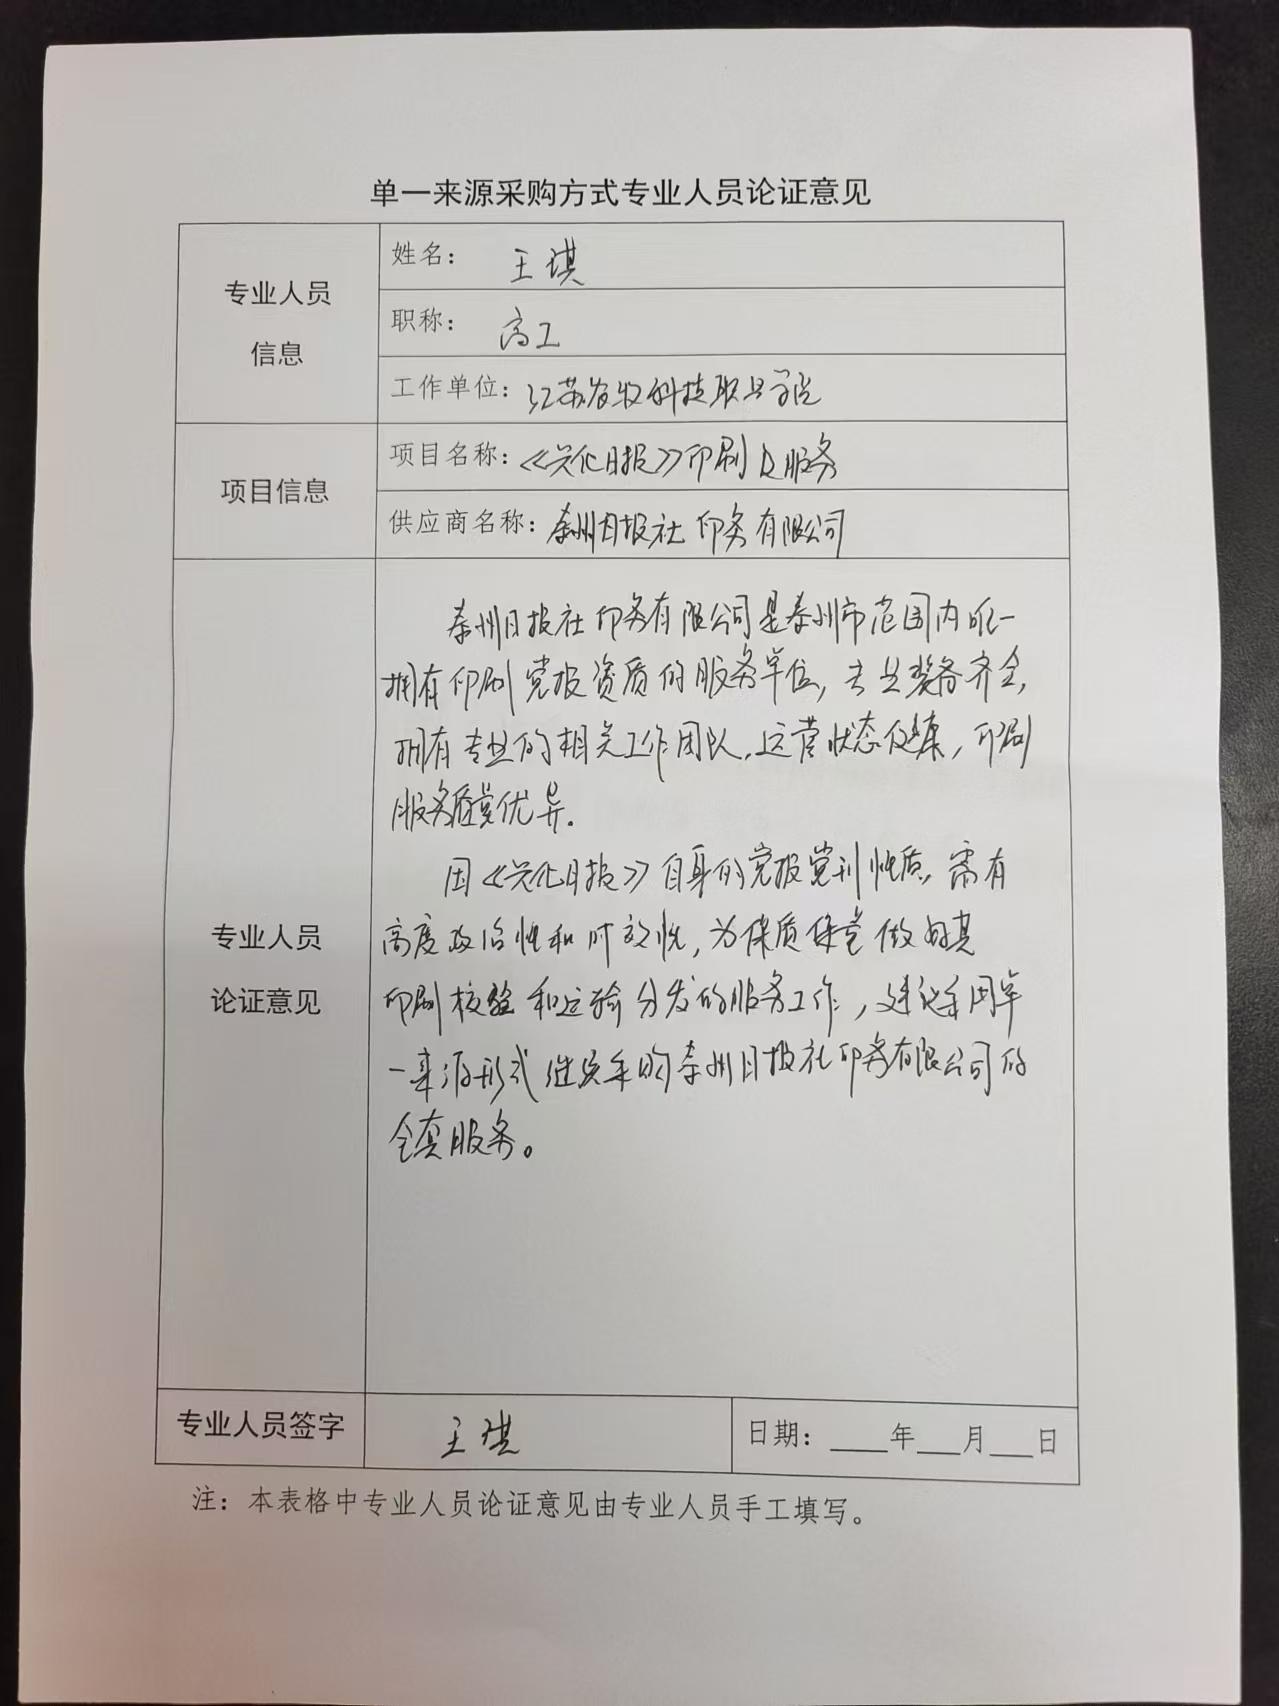 单一来源采购方式专业人员论证意见
专业人员
信息
姓名： 王琪
职称： 高工
工作单位：江苏农牧科技职业学院
项目信息
项目名称：《兴化日报》印刷及服务
供应商名称：泰州日报社印务有限公司
专业人员
论证意见
泰州日报社印务有限公司是泰州市范围内唯一
拥有印刷党报资质的服务单位，装备齐全，
拥有专业的相关工作团队，运营状态健康，印刷
服务质量优异。
因《兴化日报》自身的党报党刊性质，需有
高度政治性和时效性，为保质保量做好其
印刷核验和运输分发的服务工作，建议采用单
一来源形式继续采购泰州日报社印务有限公司的
全套服务。
专业人员签字
王琪
日期：____年___月___日
注：本表格中专业人员论证意见由专业人员手工填写。